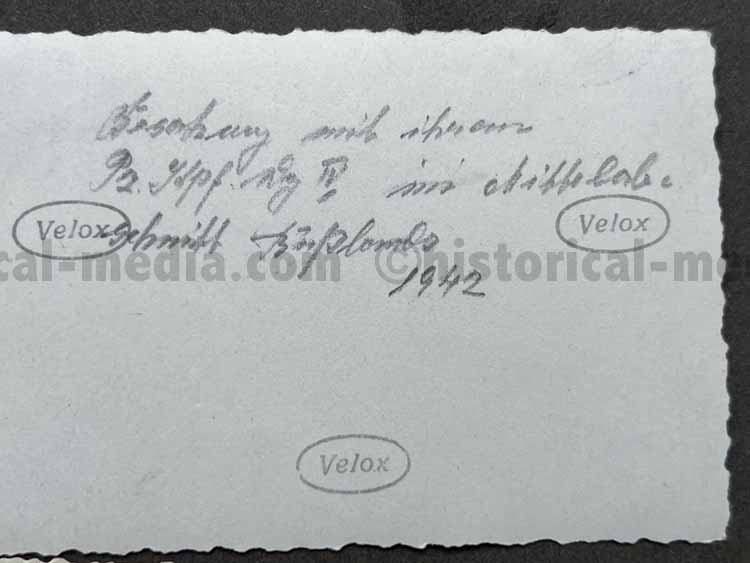 Besatzung mit ihrem
Pz. Kpf. Wg IV im Mittelab-
schnitt Rußlands
1942
Velox
Velox
Velox
cal-media.com ©historical-me